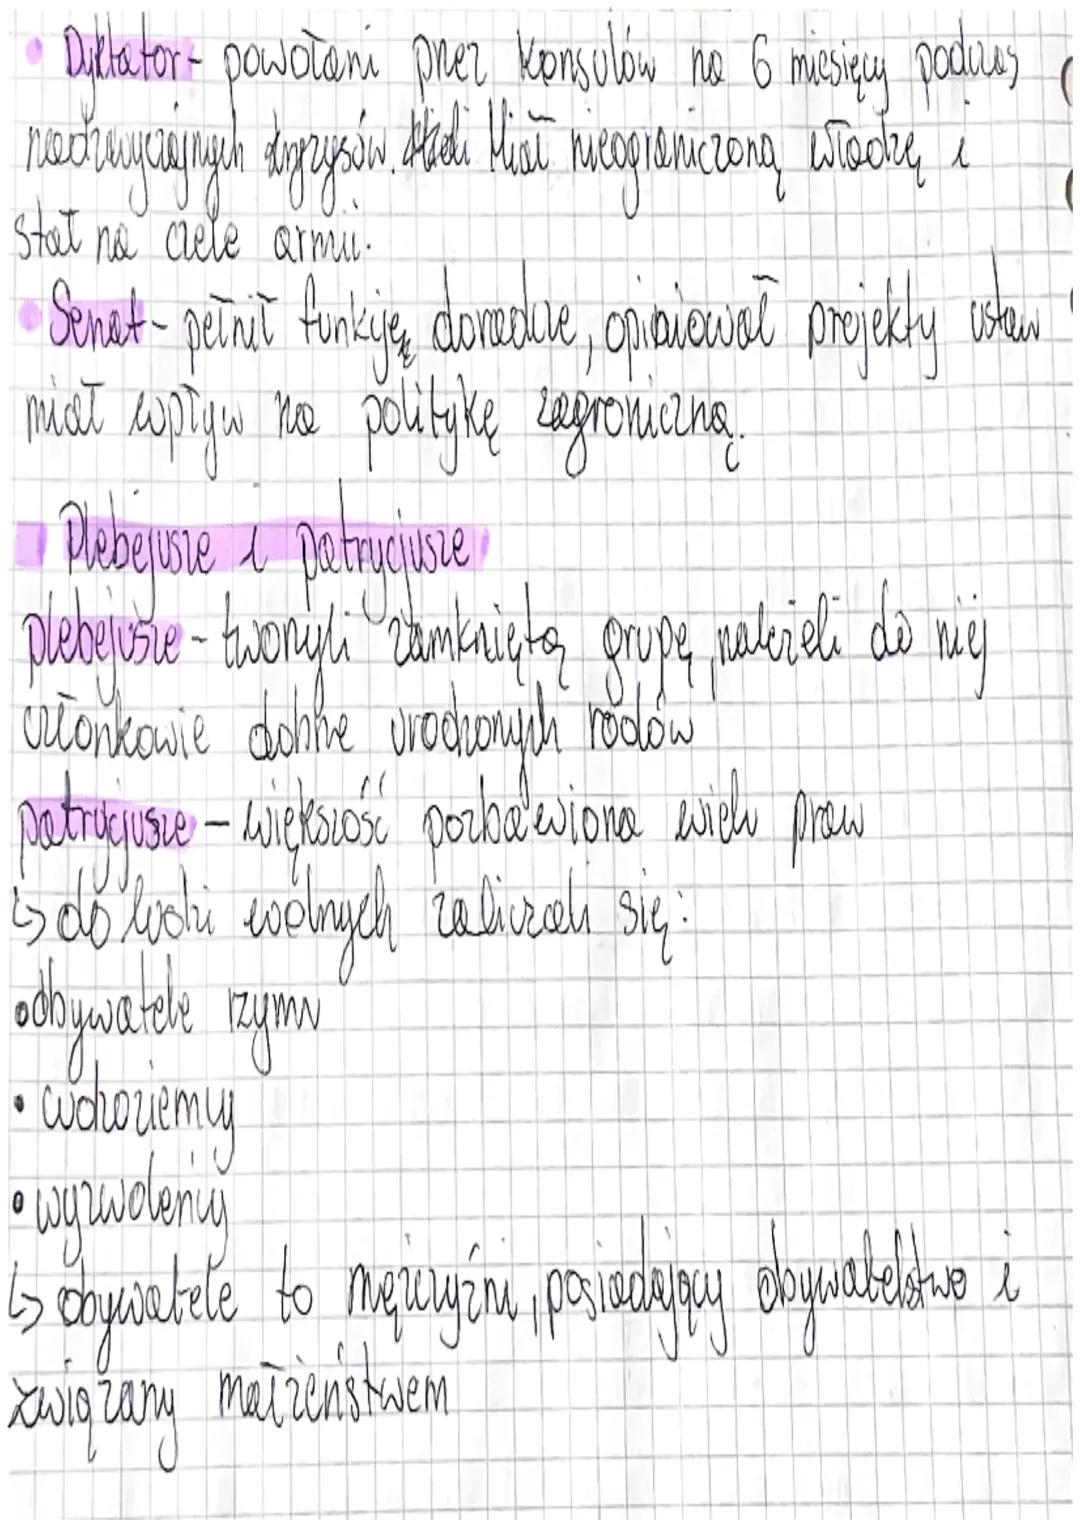 • Dyktator - powołani przez konsulów na 6 miesięcy podczas
nadzwyczajnych kryzysów. Miał nieograniczoną władzę i
stał na czele armii.
• Senat - pełnił funkcję doradcze, opiniował projekty ustaw
miał wpływ na politykę zagraniczną.
Plebejusze i patrycjusze
plebejusze - tworzyli zamkniętą grupę, należeli do niej
członkowie dobrze urodzonych rodów
patrycjusze - większość pozbawiona wielu praw
↳ do ludzi wolnych zaliczali się:
• obywatele rzymu
• cudzoziemcy
• wyzwoleńcy
↳ obywatele to mężczyźni, posiadający obywatelstwo i
związany małżeństwem